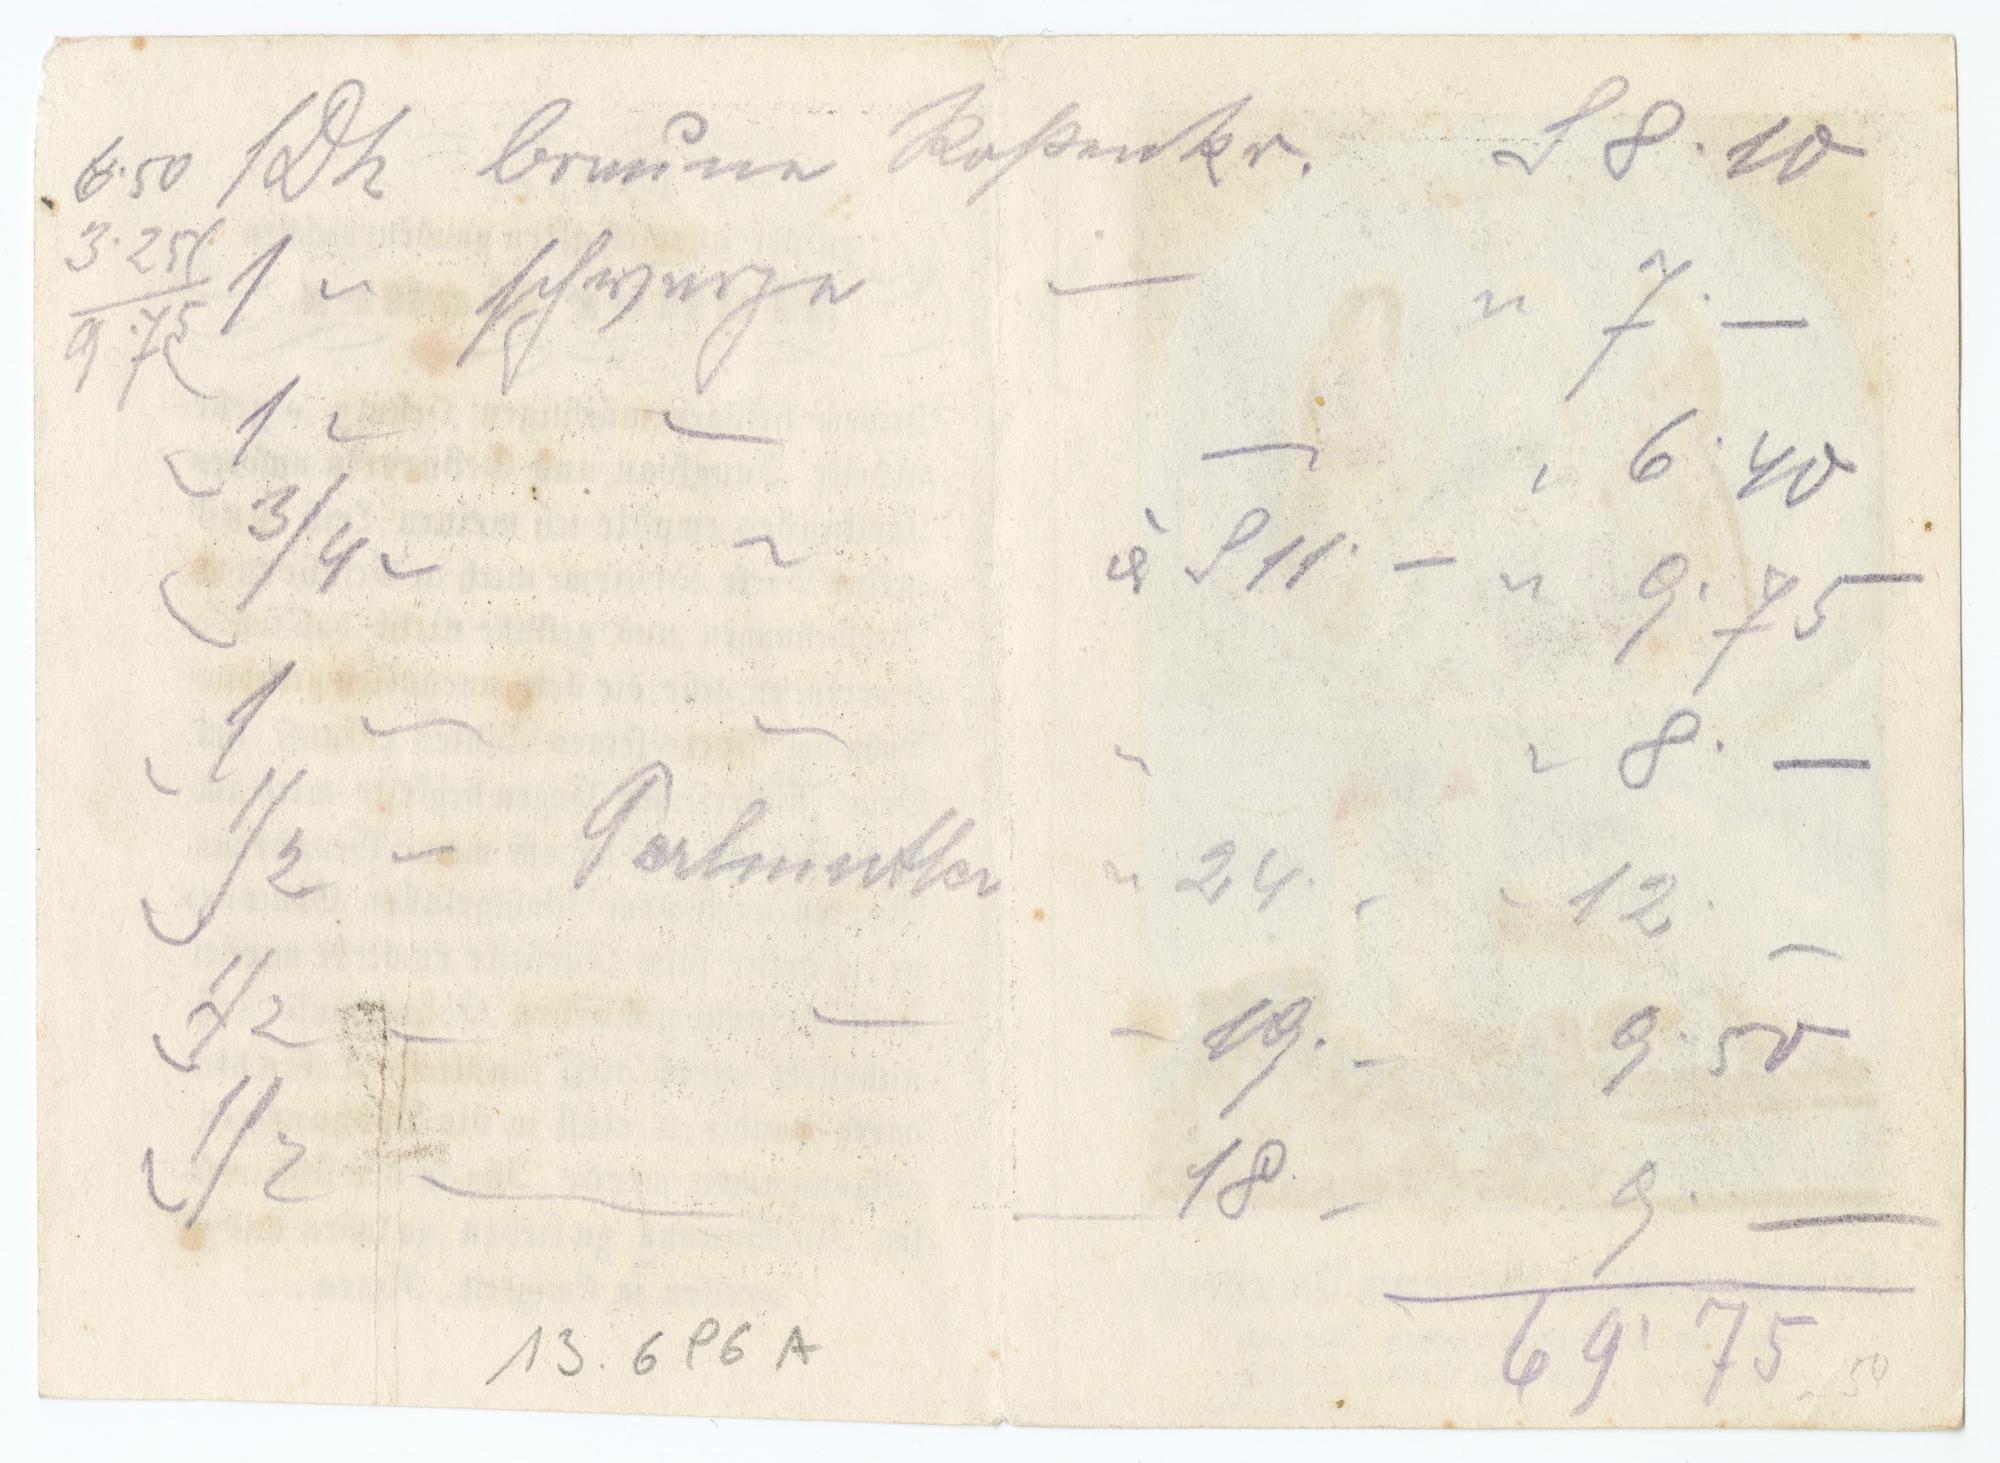 6·50 1 Dz braune Rosenkr. S 8·10
3·25 1 " schwarze — " 7·—
9·75
1 " " — " 6·40
3/4 " " à S 11·— " 9·75
1 " " " " 8·—
1/2 — Perlmutter " 24·- - 12·—
1/2 - — - 19·- 9·50
1/2 — 18·- 9·—
69·75
50
13.696 A